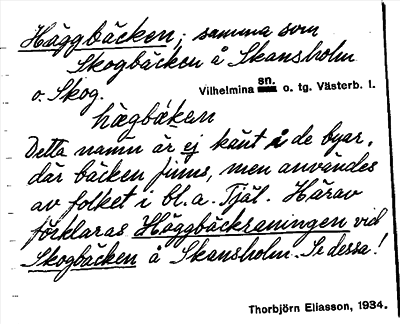 Häggbäcken; samma som
Skogbäcken å Skansholm
o. Skog.
Vilhelmina sn. o. tg. Västerb. l.
hægbäken
Detta namn är ej känt i de byar,
där bäcken finns, men användes
av folket i bl.a. Tjäl. Härav
förklaras Häggbäcksraningen vid
Skogbäcken å Skansholm. Se dessa!
Thorbjörn Eliasson, 1934.